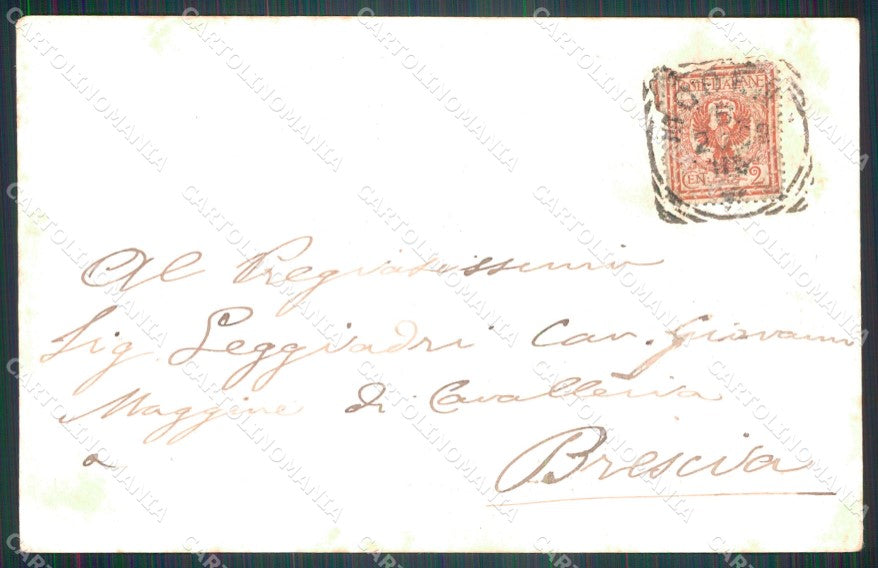 POSTE ITALIANE
CENT. 2
MODENA
Al Pregiatissimo
Sig. Leggiadri Cav. Giovanni
Maggiore di Cavalleria
a
Brescia
CARTOLINOMANIA